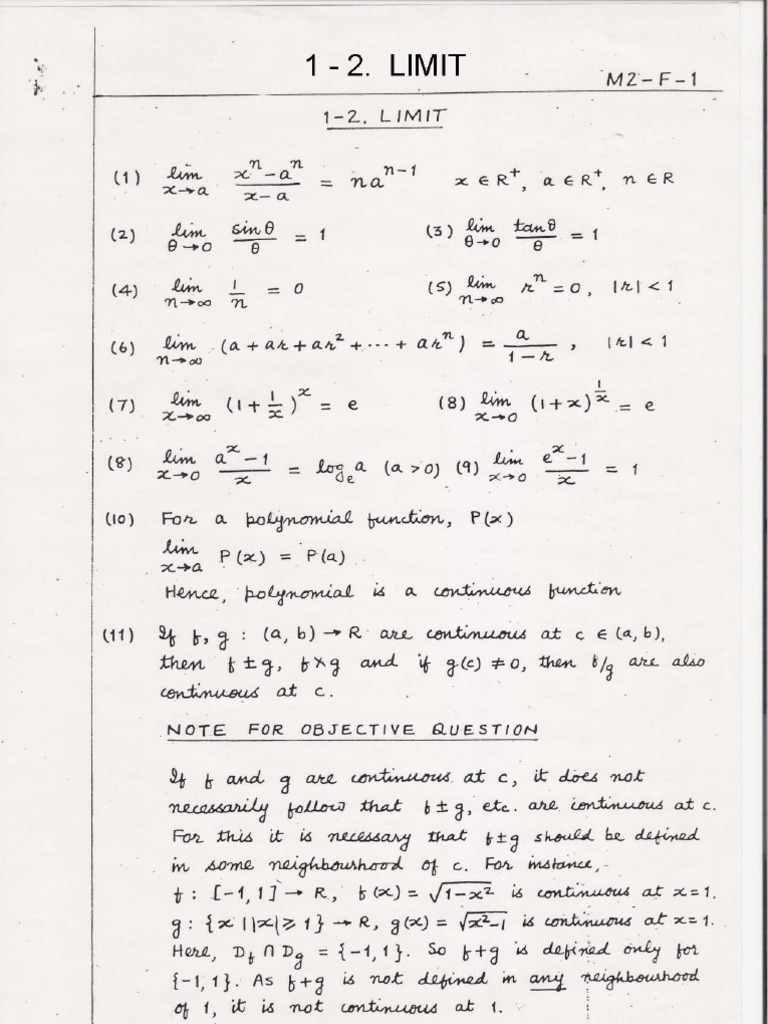 1 - 2. LIMIT
M2-F-1
1-2. LIMIT
(1) lim x→a (xⁿ-aⁿ)/(x-a) = naⁿ⁻¹ x ∈ R⁺, a ∈ R⁺, n ∈ R
(2) lim θ→0 sinθ/θ = 1 (3) lim θ→0 tanθ/θ = 1
(4) lim n→∞ 1/n = 0 (5) lim n→∞ rⁿ = 0, |r| < 1
(6) lim n→∞ (a + ar + ar² + ··· + arⁿ) = a/(1-r), |r| < 1
(7) lim x→∞ (1 + 1/x)ˣ = e (8) lim x→0 (1+x)^(1/x) = e
(8) lim x→0 (aˣ-1)/x = logₑa (a>0) (9) lim x→0 (eˣ-1)/x = 1
(10) For a polynomial function, P(x)
lim x→a P(x) = P(a)
Hence, polynomial is a continuous function
(11) If f, g : (a, b) → R are continuous at c ∈ (a, b),
then f ± g, f × g and if g(c) ≠ 0, then f/g are also
continuous at c.
NOTE FOR OBJECTIVE QUESTION
If f and g are continuous at c, it does not
necessarily follow that f ± g, etc. are continuous at c.
For this it is necessary that f ± g should be defined
in some neighbourhood of c. For instance,
f : [-1, 1] → R, f(x) = √(1-x²) is continuous at x=1.
g : {x | |x| ≥ 1} → R, g(x) = √(x²-1) is continuous at x=1.
Here, D_f ∩ D_g = {-1, 1}. So f+g is defined only for
{-1, 1}. As f+g is not defined in any neighbourhood
of 1, it is not continuous at 1.